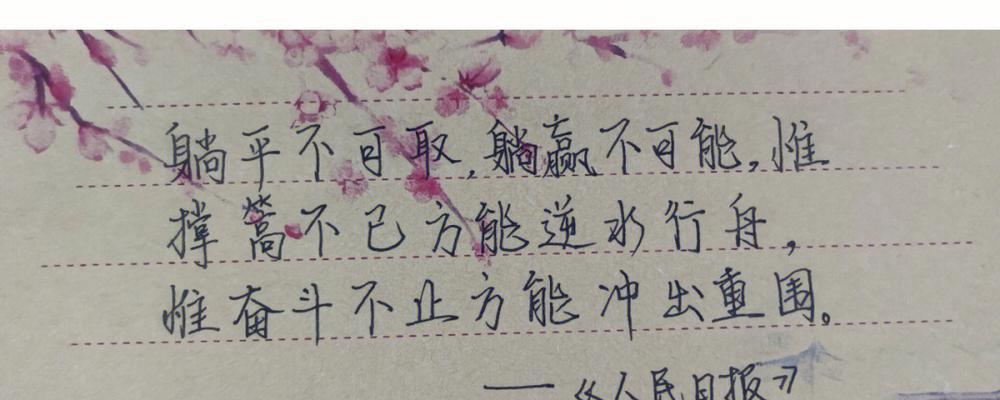 躺平不可取,躺赢不可能,惟
撑篙不已方能逆水行舟,
惟奋斗不止方能冲出重围。
——《人民日报》